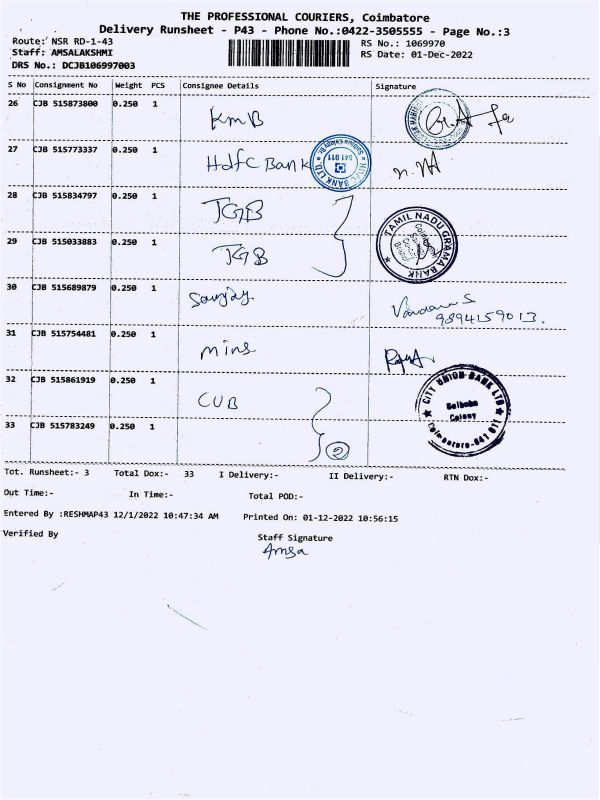 THE PROFESSIONAL COURIERS, Coimbatore
Delivery Runsheet - P43 - Phone No.:0422-3505555 - Page No.:3
Route: NSR RD-1-43 RS No.: 1069970
Staff: AMSALAKSHMI RS Date: 01-Dec-2022
DRS No.: DCJB106997003
S No Consignment No Weight PCS Consignee Details Signature
26 CJB 515873800 0.250 1 KMB
27 CJB 515773337 0.250 1 Hdfc Bank
HDFC BANK LTD. 641 011
28 CJB 515834797 0.250 1 TGB
TAMIL NADU GRAMA BANK
29 CJB 515033883 0.250 1 TGB
30 CJB 515689879 0.250 1 Sanjay Vandana S
9894159013.
31 CJB 515754481 0.250 1 mins
32 CJB 515861919 0.250 1 CUB
CITY UNION BANK LTD
Saibaba
Colony
Coimbatore-641 011
33 CJB 515783249 0.250 1
2
Tot. Runsheet:- 3 Total Dox:- 33 I Delivery:- II Delivery:- RTN Dox:-
Out Time:- In Time:- Total POD:-
Entered By :RESHMAP43 12/1/2022 10:47:34 AM Printed On: 01-12-2022 10:56:15
Verified By Staff Signature
Amsa